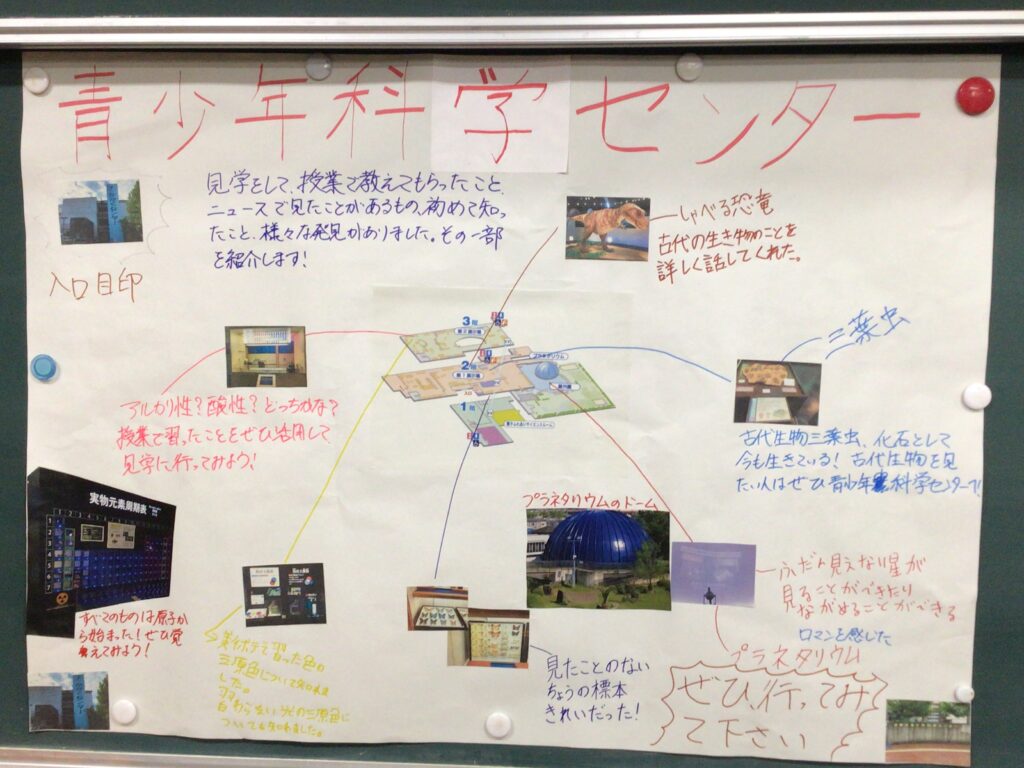 青少年科学センター
見学をして、授業で教えてもらったこと、
ニュースで見たことがあるもの、初めて知っ
たこと、様々な発見がありました。その一部
を紹介します!
入口目印
しゃべる恐竜
古代の生き物のことを
詳しく話してくれた。
3階
2階
プラネタリウム
1階
三葉虫
古代生物三葉虫、化石として
今も生きている!古代生物を見
たい人はぜひ青少年科学センターで!
アルカリ性?酸性?どっちかな?
授業で習ったことをぜひ活用して
見学に行ってみよう!
実物元素周期表
すべてのものは原子か
ら始まった!ぜひ覚
えてみよう!
三原色について
した。
プラネタリウムのドーム
見たことのない
ちょうの標本
きれいだった!
ふだん見えない星が
見ることができたり
ながめることができる
ロマンを感じた
プラネタリウム
ぜひ、行ってみ
て下さい